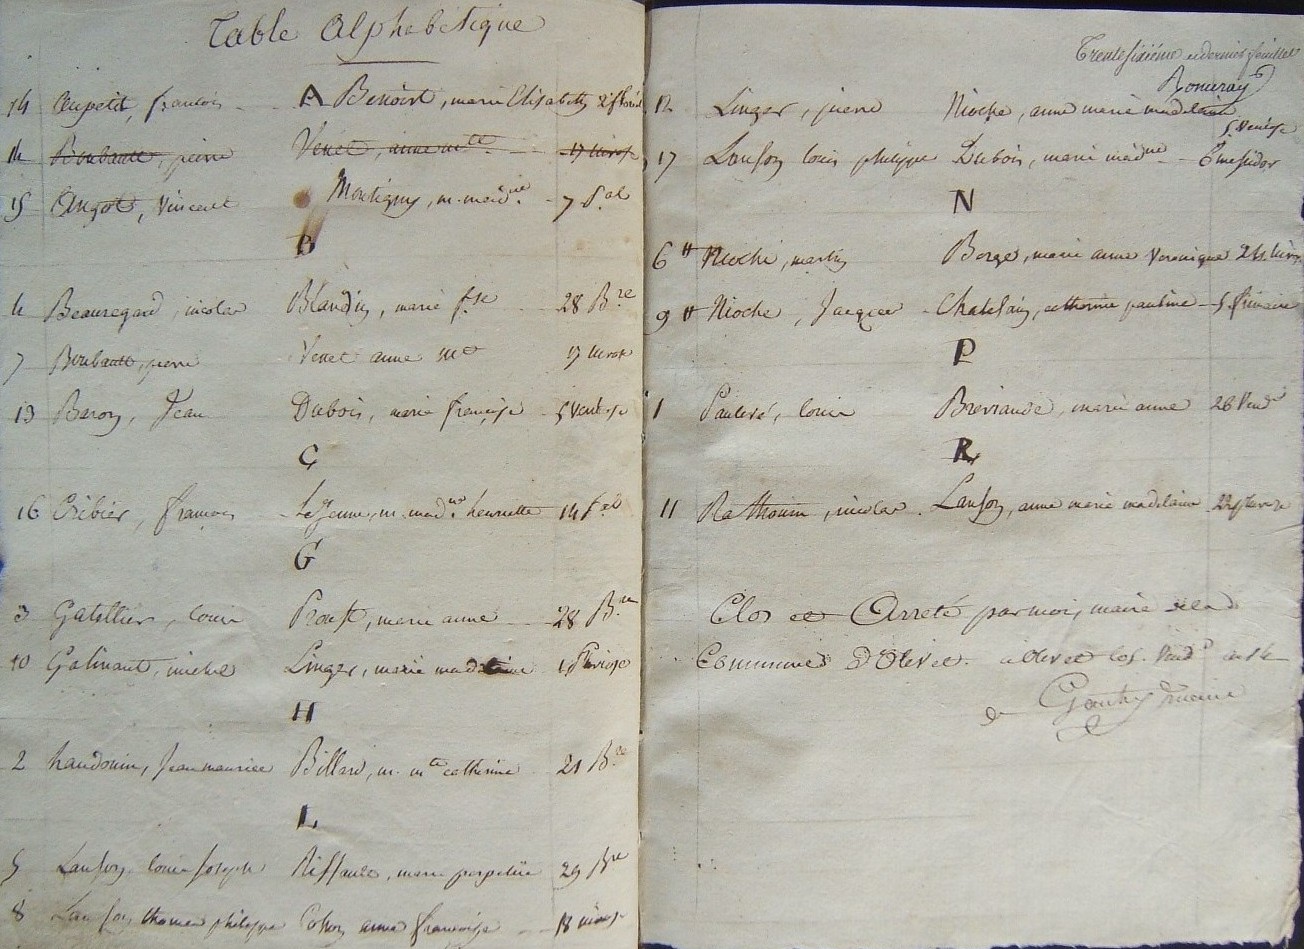 Table Alphabétique
A
14 Aupetit, francois Benoist, marie Elisabeth
14 Boubault, pierre Venet, anne mte 17 nivose
15 Angot, Vincent Montigny, m. madne. 7 
B
4 Beauregard, nicolas Blandin, marie fse 28 Bre
7 Boubault, pierre Venet anne mte 17 nivose
13 Baron, Jean Dubois, marie françoise 5 Ventose
C
16 Cribier, françois LeJeune, m. madne. henriette 14
G
3 Gatellier, louis Proust, marie anne 28 Bre
10 Galinant, michel Linger, marie madelaine 1 Pluviose
H
2 haudouin, Jean maurice Billard, m. mte catherine 21 Bre
L
5 Lanson louis Joseph Riffault, marie perpetüe 29 Bre
8 Lanson thomas philippe anne françoise 18 nivose
Trente sixième et dernier feuillet
12 Linger, pierre Nioche, anne marie madelaine 5 Ventose
17 Lanson louis philippe Dubois, marie madne 6 messidor
N
6 Nioche, martin marie anne Veronique 24 niv
9 Nioche, Jacques Chatelain, catherine pauline 5 frimaire
P
1 Paulvé, louis marie anne 28 Vendre
R
11 nicolas Lanson, anne marie madelaine 22
Clos et Arreté par moi, maire de la
Commune d'Olivet. a Olivet Vendre an 14
maire